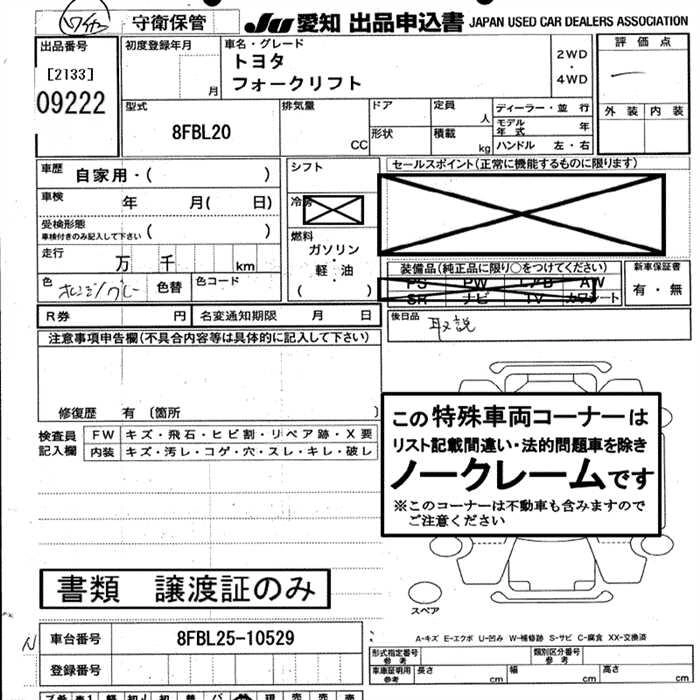 ワイヤ 守衛保管 JU 愛知 出品申込書 JAPAN USED CAR DEALERS ASSOCIATION
出品番号
[2133]
09222
初度登録年月
月
車名・グレード
トヨタ
フォークリフト
2WD
・
4WD
評価点
外装 内装
型式
8FBL20
排気量
CC
ドア
形状
定員
人
積載
kg
ディーラー・並行
モデル年式 年
ハンドル 左・右
車歴 自家用・( )
車検 年 月( 日)
受検形態
車検付きのみ記入して下さい ( )
走行 万 千 km
色 オレンジグレー 色替 色コード
シフト
冷房
燃料
ガソリン
・
軽・油
( )
セールスポイント(正常に機能するものに限ります)
装備品(純正品に限り○をつけてください)
PS PW エアB AW
SR ナビ TV カワシート
新車保証書
有・無
R券 円 名変通知期限 月 日
後日品
取説
注意事項申告欄(不具合内容等は具体的に記入して下さい)
修復歴 有 〔箇所 〕
検査員
記入欄
FW キズ・飛石・ヒビ割・リペア跡・X要
内装 キズ・汚レ・コゲ・穴・スレ・キレ・破レ
この特殊車両コーナーは
リスト記載間違い・法的問題車を除き
ノークレームです
※このコーナーは不動車も含みますので
ご注意ください
書類 譲渡証のみ
スペア
A-キズ E-エクボ U-凹み W-補修跡 S-サビ C-腐食 XX-交換済
N
車台番号 8FBL25-10529
登録番号
型式指定番号
参考
類別区分番号
参考
車庫証明用
参考
長さ cm 幅 cm 高さ cm